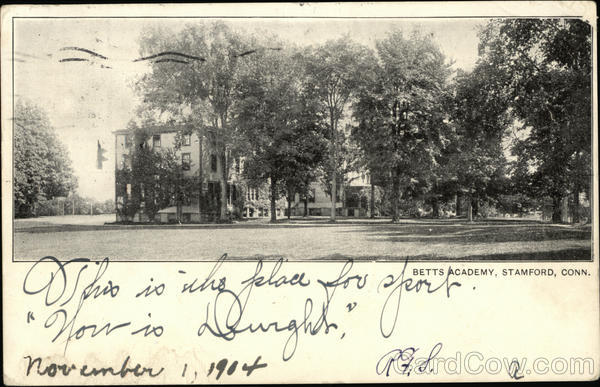 BETTS ACADEMY, STAMFORD, CONN.
This is the place for sport.
"How is Dwight,"
November 1, 1904
CardCow.com